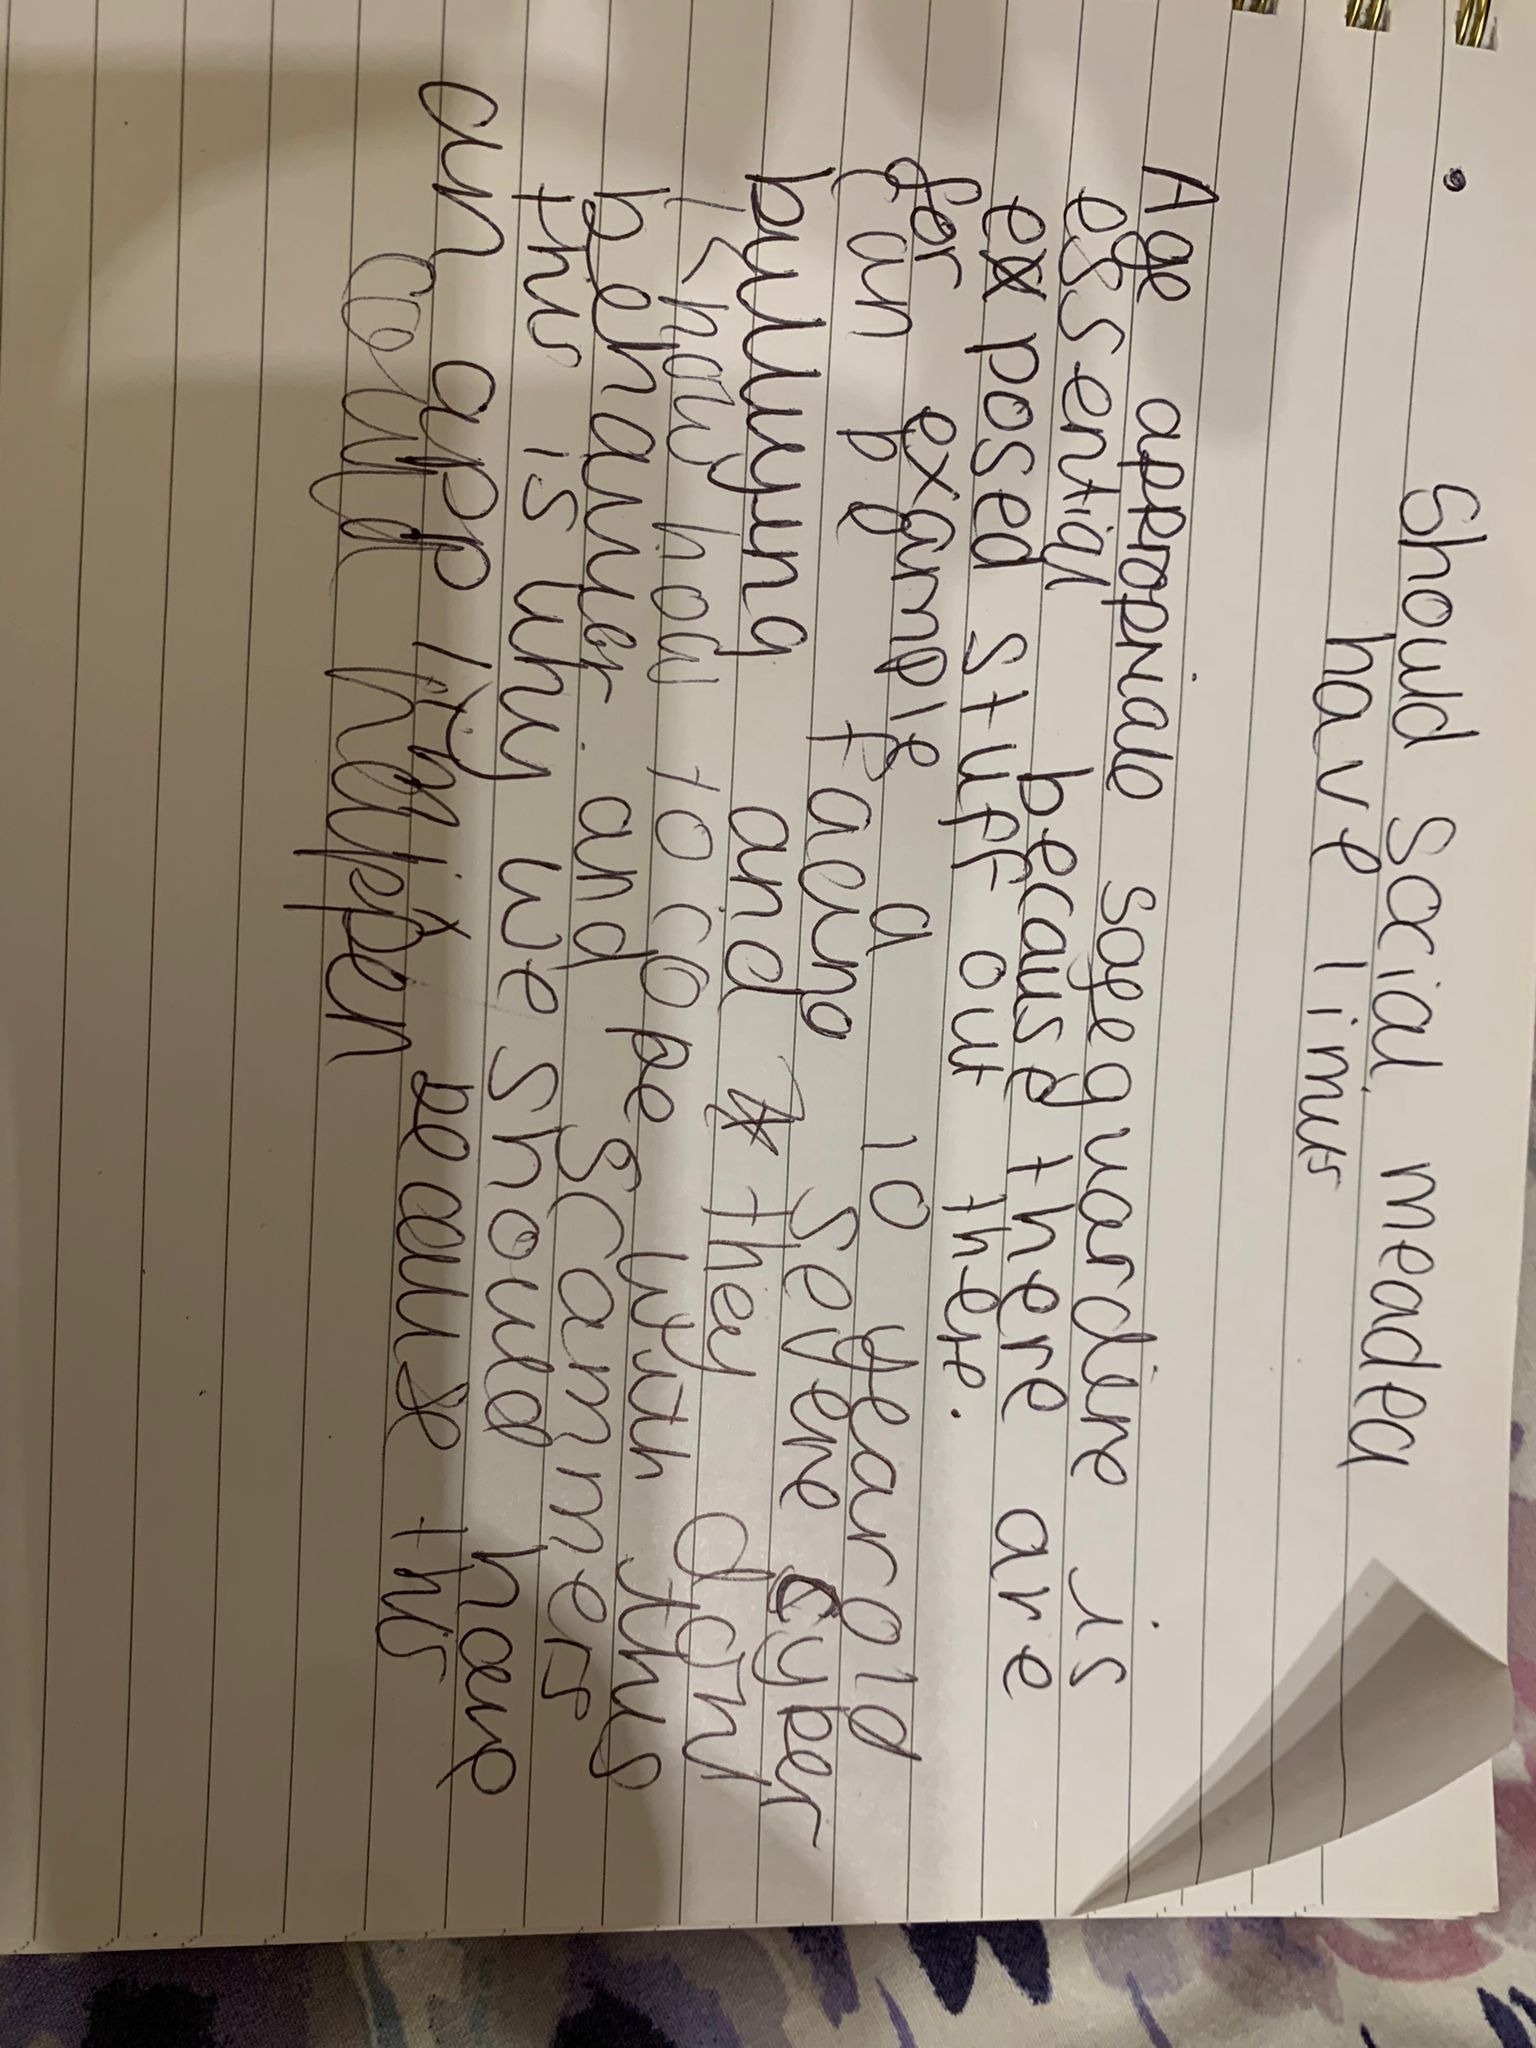 Should social meadea
have limits
Age appropriate safeguardine is
essential because there are
exposed stuff out there.
for example a 10 year old
facing severe cyber
bullying and they dont
know how to cope with this
behavier and scammers
this is why we should have
an app limit because this
could happen